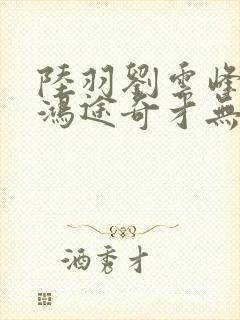 陸羽劉雲峰
鴻途奇才無
酒秀才